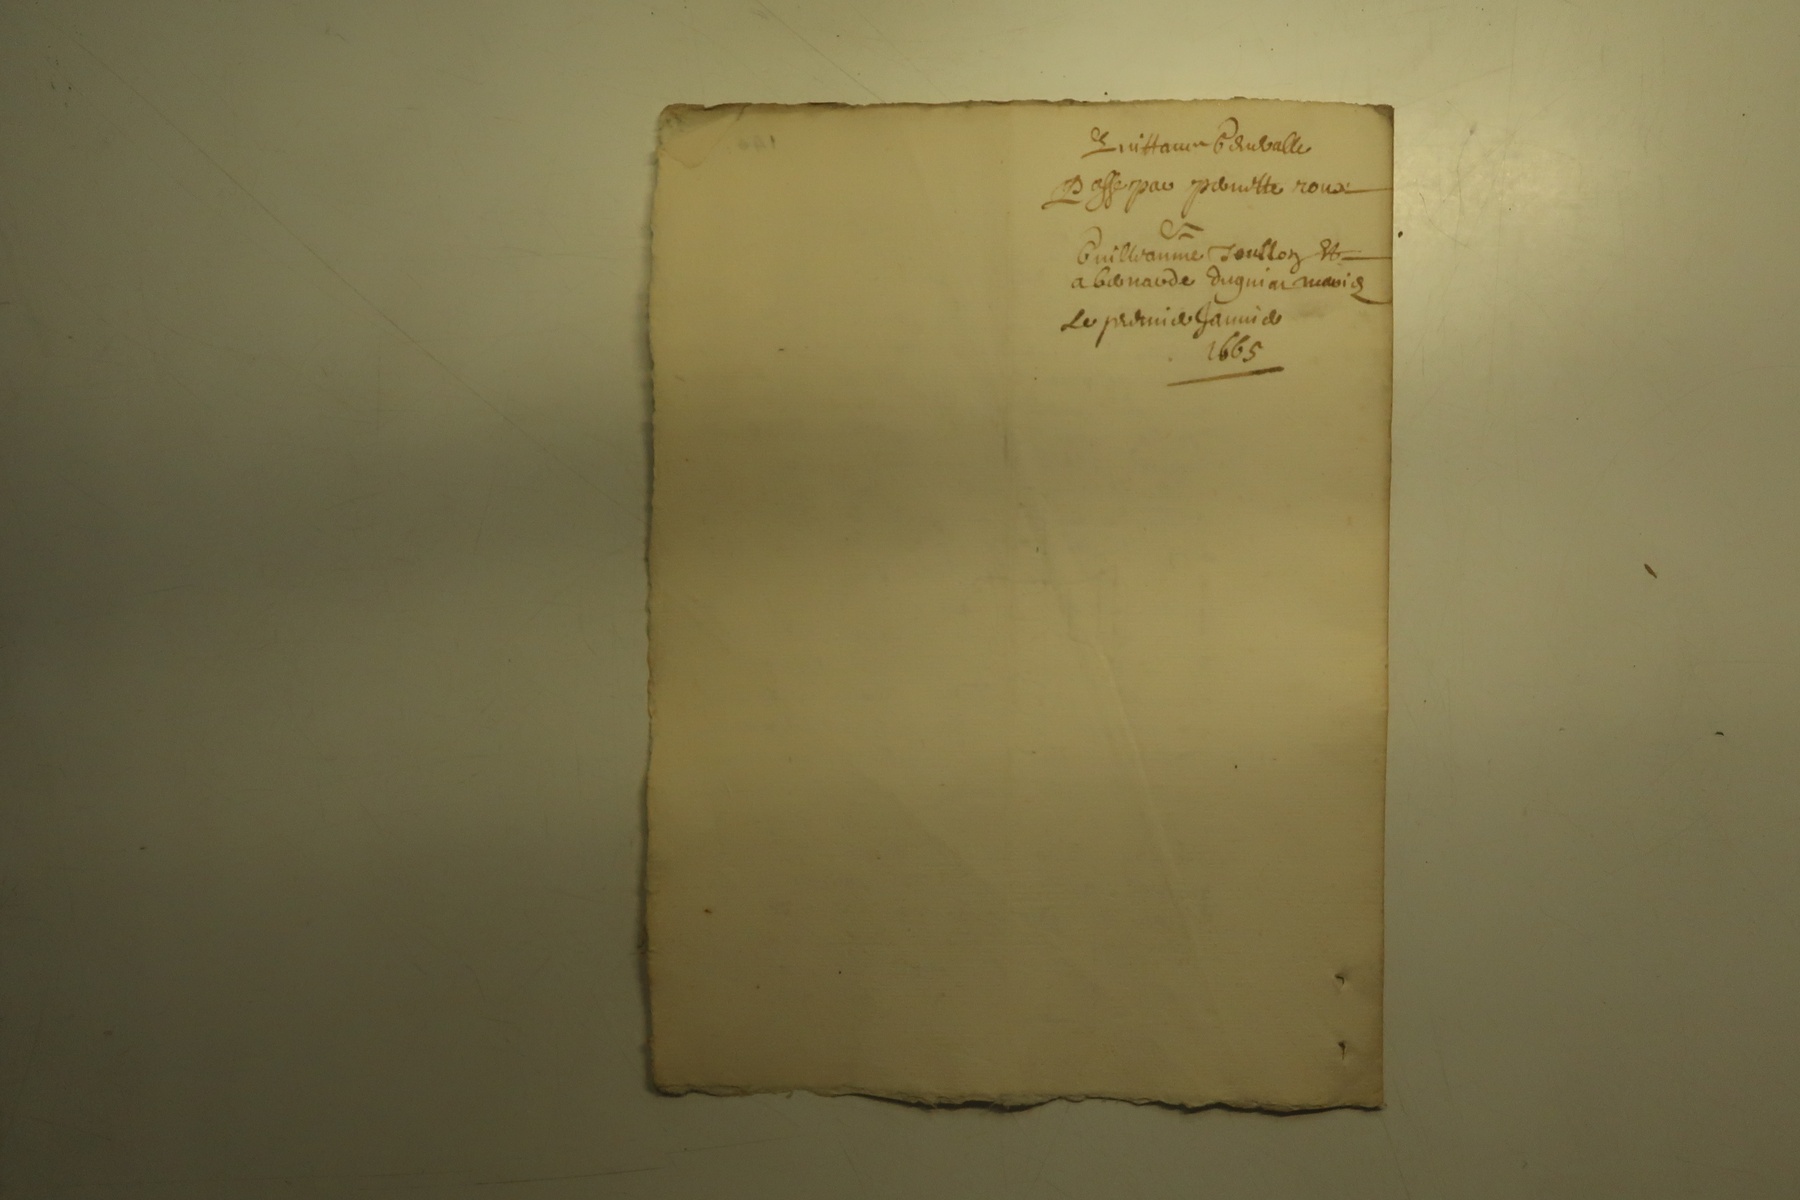 Quittance generalle
Passe par pernette roux
A
Guillaume Toullon Et
a bernarde duguiar mariez
Le premier Januier
1665